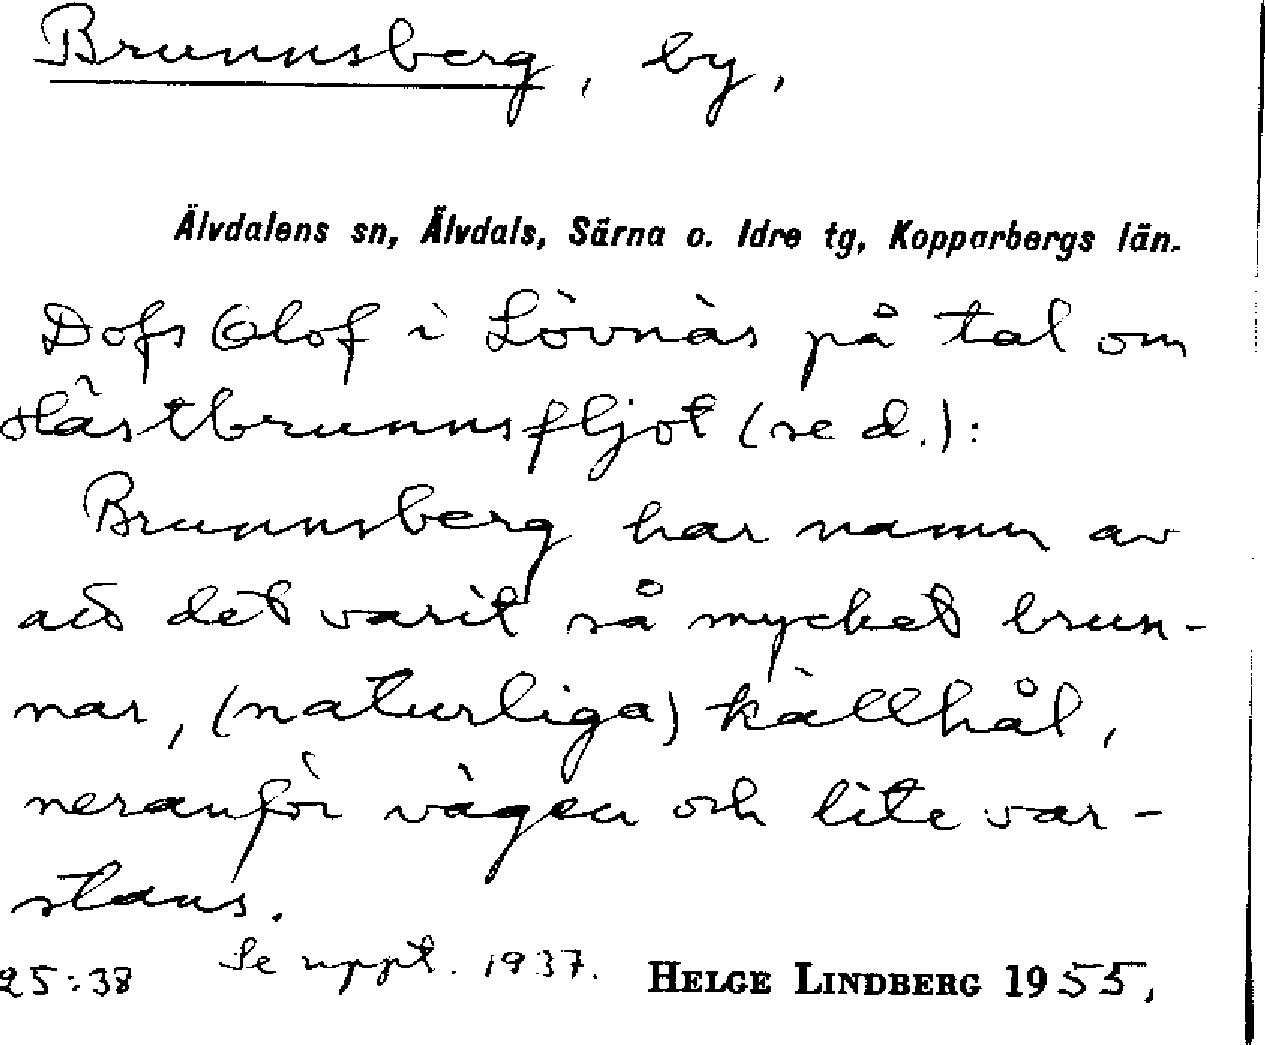 Brunnsberg, by,
Älvdalens sn, Älvdals, Särna o. Idre tg, Kopparbergs län.
Dofs Olof i Lövnäs på tal om
Hästbrunnsfljot (se d.):
Brunnsberg har namn av
att det varit så mycket brun-
nar, (naturliga) källhål,
neranför vägen och lite var-
stans.
25:38 Se uppt. 1937. HELGE LINDBERG 1955,